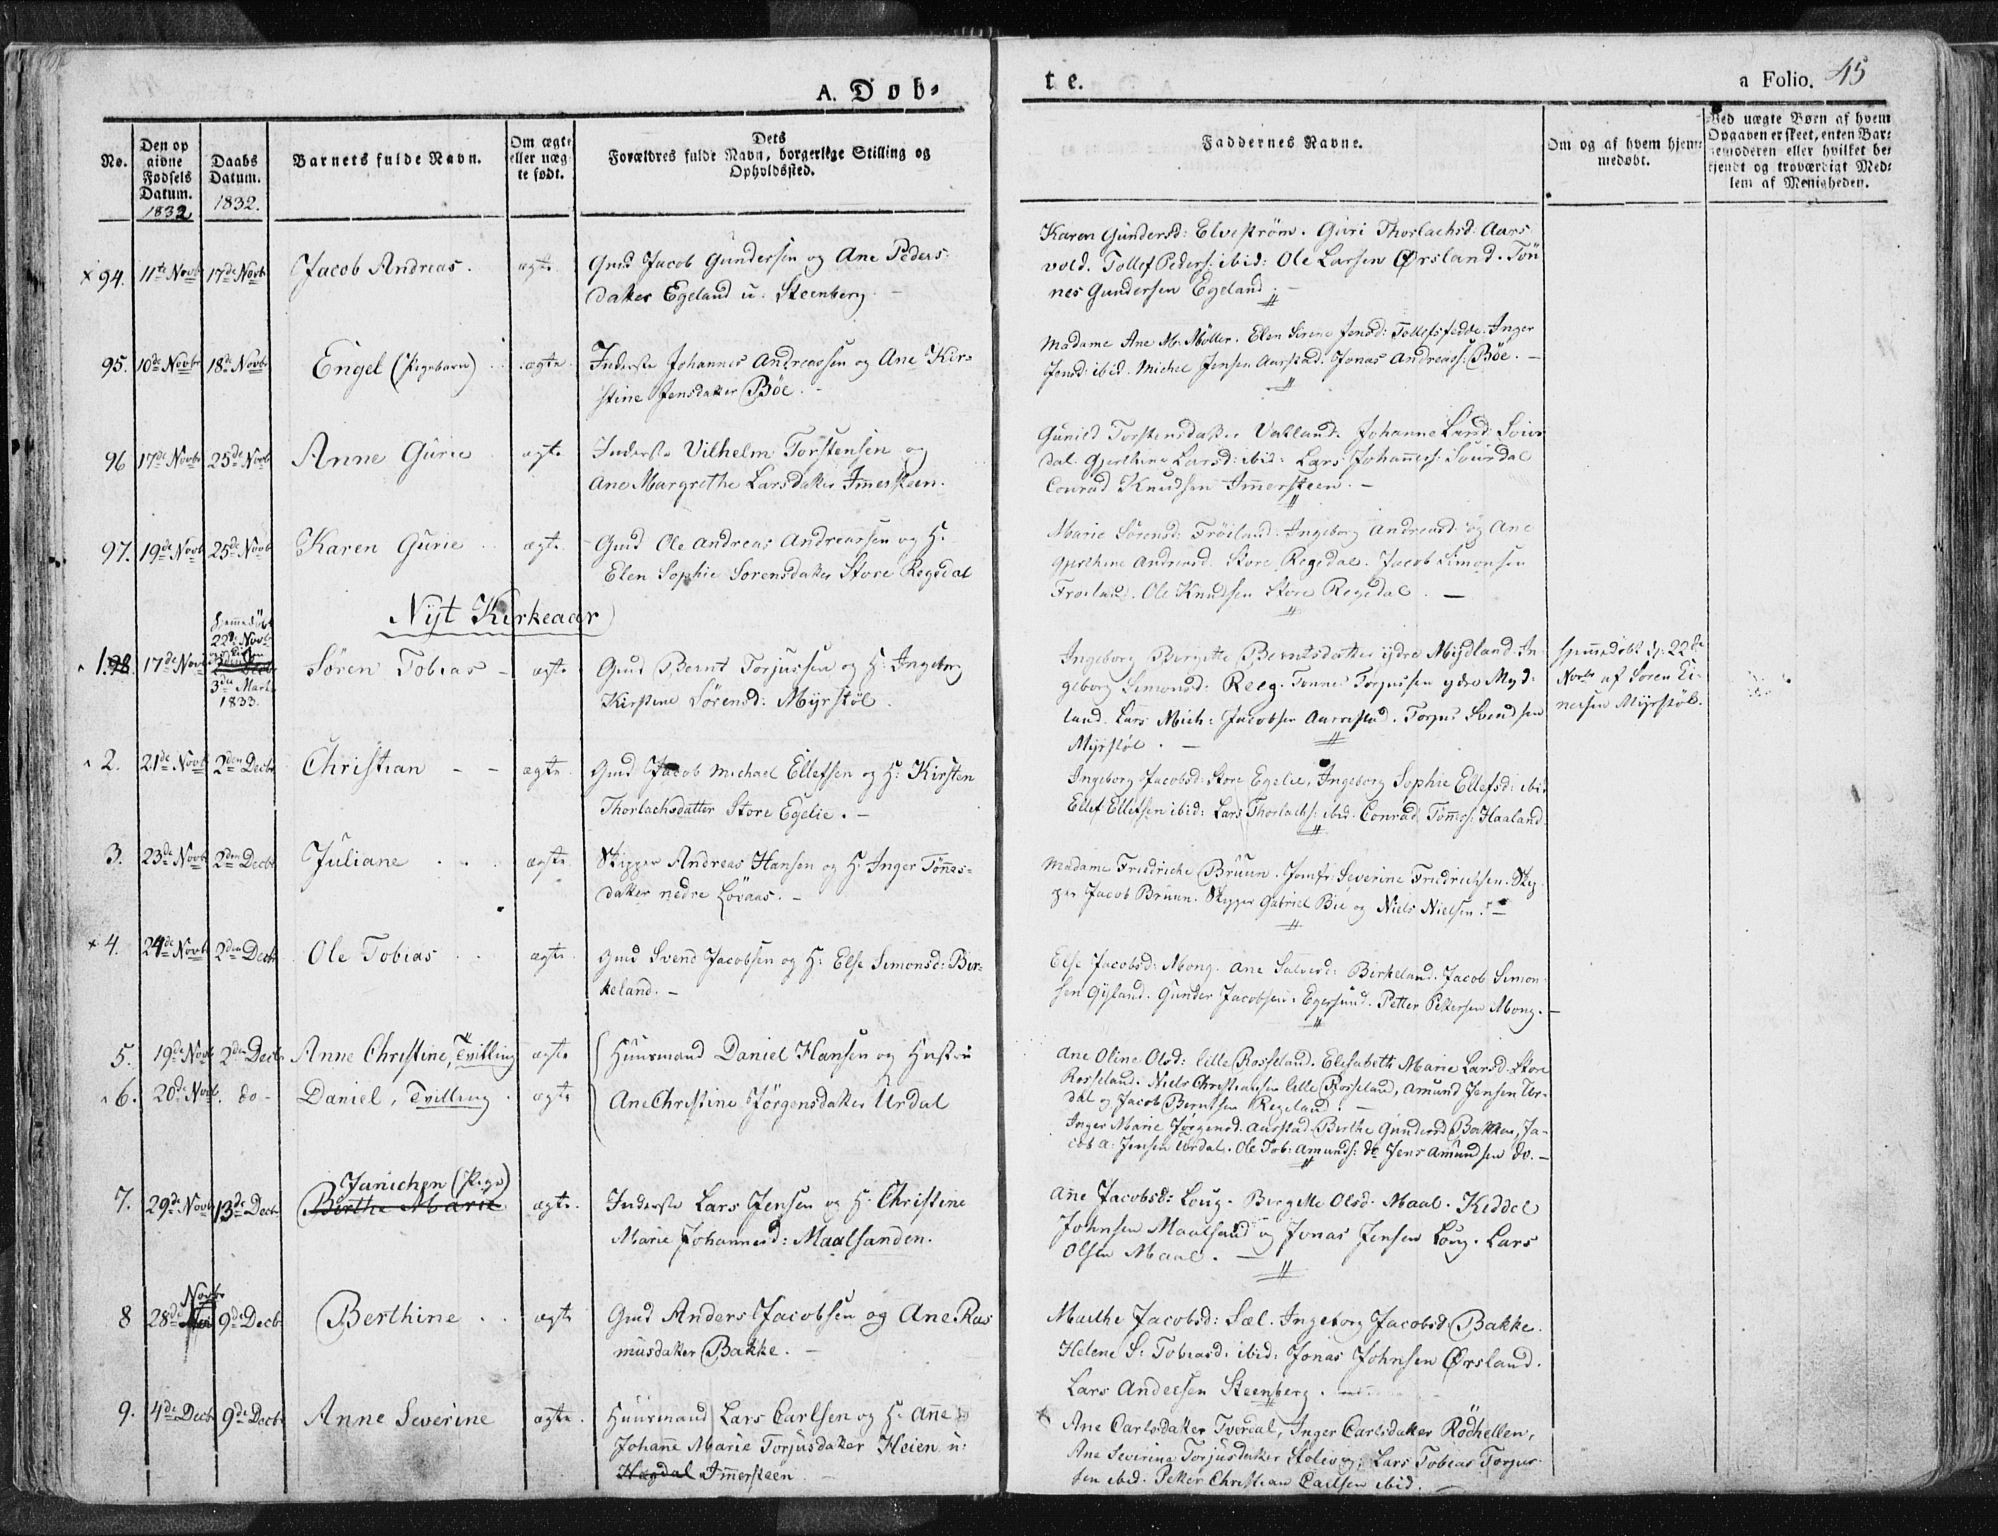 A. Døb-
te.
a Folio. 45
No.
Den op
givne
Fødsels
Datum.
1832
Daabs
Datum.
1832.
Barnets fulde Navn.
Om ægte
eller uæg-
te født.
Dets
Forældres fulde Navn, borgerlige Stilling og
Opholdssted.
Faddernes Navne.
Om og af hvem hjem-
medøbt.
Ved uægte Børn af hvem
Opgaven er skeet, enten Bar-
nemoderen eller hvilket be-
kjendt og troværdigt Med-
lem af Menigheden.
× 94. 11te Novbr 17de Novbr Jacob Andreas. ægte Gmd Jacob Gundersen og Ane Peders-
datter Egeland u: Steenberg.
Karen Gundersd: Elvestrøm. Guri Thorlachsd: Aars
vold. Tollef Peders: ibid: Ole Larsen Ørsland. Tøn
nes Gundersen Egeland.
95. 10de Novbr 18de Novbr Engel (Pigebarn) ægte Inderste Johannes Andreassen og Ane Kir-
stine Jensdatter Bøe.
Madame Ane M. Møller. Elen Sirene Jensd: Tollefsfedde. Inger
Jensd: ibid. Michel Jensen Aarstad. Jonas Andreass: Bøe.
96 17de Novbr 25de Novbr Anne Gurie ægte Inderste Vilhelm Torstensen og
Ane Margrethe Larsdatter Immersteen.
Gunild Torstensdatter Vatland. Johanne Larsd: Soier
dal. Gjerthine Larsd: ibid: Lars Johannes: Souirdal
Conrad Knudsen Immersteen.
97. 19de Novb 25de Novb Karen Gurie ægte Gmd Ole Andreas Andreassen og H.
Elen Sophie Sørensdatter Store Regedal
Marie Sørensd: Frøiland. Ingeborg Andreasd: og Ane
Gjerthine Andreasd. Store Regedal. Jacob Simonsen
Frøiland. Ole Knudsen Store Regedal.
Nyt Kirkeaar
1. 98 17de Novb
22de Novb
3die Marts
1833.
Søren Tobias ægte Gmd Bernt Torjussen og H: Ingeborg
Kirstine Sørensd: Myrstøl.
Ingeborg Birgitte Berntsdatter ydre Mydland. In
geborg Simonsd: Reeg. Tønnes Torjussen ydre Myd-
land. Lars Mich: Jacobsen Aarrestad. Torjus Svendsen
Myrstøl.
Hjemmedøbt d: 22de
Novbr af Søren Ei-
nersen Myrstøl.
2. 21de Novb 2den Decbr Christian ægte Gmd Jacob Michael Ellefsen og H: Kirsten
Thorlachsdatter Store Egelie.
Ingeborg Jacobsd: Store Egelie, Ingeborg Sophie Ellefsd: ibid
Ellef Ellefsen ibid: Lars Thorlachs: ibid. Conrad Tønnes: Haaland
3. 23de Novb 2den Decbr Juliane ægte Skipper Andreas Hansen og H. Inger Tønnes-
datter nedre Løvaas.
Madame Friedriche Bruun. Jomfr: Severine Friedrichsen. Skip-
per Jacob Bruun. Skipper Gabriel Bie og Niels Nielsen.
× 4. 24de Novb 2den Decbr Ole Tobias ægte Gmd Svend Jacobsen og H: Else Simonsd: Bir-
keland.
Else Jacobsd: Mong. Ane Salvesd: Birkeland. Jacob Simon-
sen Gyland. Gunder Jacobsen. Egersund. Petter Pettersen Mong.
5. 19de Novb 2den Decbr Anne Christine, Tvilling ægte Huusmand Daniel Hansen og Hustru
6. 20de Novb. do Daniel, Tvilling ægte Ane Christine Jørgensdatter Urdal
Ane Oline Olsd: lille Rosseland. Elisabeth Marie Larsd. Store
Rosseland. Niels Christiansen lille Rosseland, Amund Jensen Ur-
dal og Jacob Berntsen Regeland.
Inger Marie Jørgensd. Aarstad. Berthe Gundersd Bakken, Ja-
cob A: Jensen Urdal. Ole Tob: Amunds: do Jens Amundsen do.
7. 29de Novb 13de Decbr Janichen (Pige)
Berthe Marie ægte. Inderste Lars Jensen og H. Christine
Marie Johannesd: Maalsanden.
Ane Jacobsd: Loug. Birgitte Olsd. Maal. Kiddel
Johnsen Maalsand og Jonas Jensen Loug. Lars
Olsen Maal.
8 28de Novbr 9de Decbr Berthine ægte Gmd Anders Jacobsen og Ane Ras
musdatter Bakke.
Marthe Jacobsd: Sæl. Ingeborg Jacobsd. Bakke.
Helene S: Tobiasd: ibid: Jonas Johnsen Ørsland.
Lars Andersen Steenberg.
9. 4de Decbr 9de Decbr Anne Severine ægte. Huusmand Lars Carlsen og H: Ane
Johanne Marie Torjusdatter Heien u:
Hægdal Immersteen
Ane Carlsdatter Tverdal, Inger Carlsdatter Rødhellen,
Ane Severine Torjusdatter Lars Tobias Torjus-
sen ibid. Petter Christian Carlsen ibid.